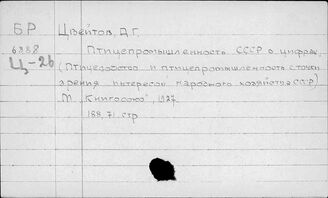 БР Цвейтов, А.Г.
6388
Ц-26
Птицепромышленность СССР в цифрах
(Птицеводство и птицепромышленность с точки
зрения интересов народного хозяйства СССР)
М. "Книгосоюз", 1927.
188, 71 стр